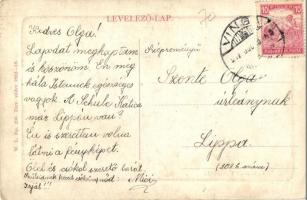 LEVELEZŐ-LAP.
Kedves Olga!
Lapodat megkaptam
és köszönöm. Én meg
hála Istennek egészséges
vagyok. A Schule Katica
már Lippán van?
Én is szerettem volna
látni a fényképet.
Ölel és csókol szerető barát
Mici
Irjál!!
Szépreményű
Szente Olga
úrleánynak
Lippa
VINGA